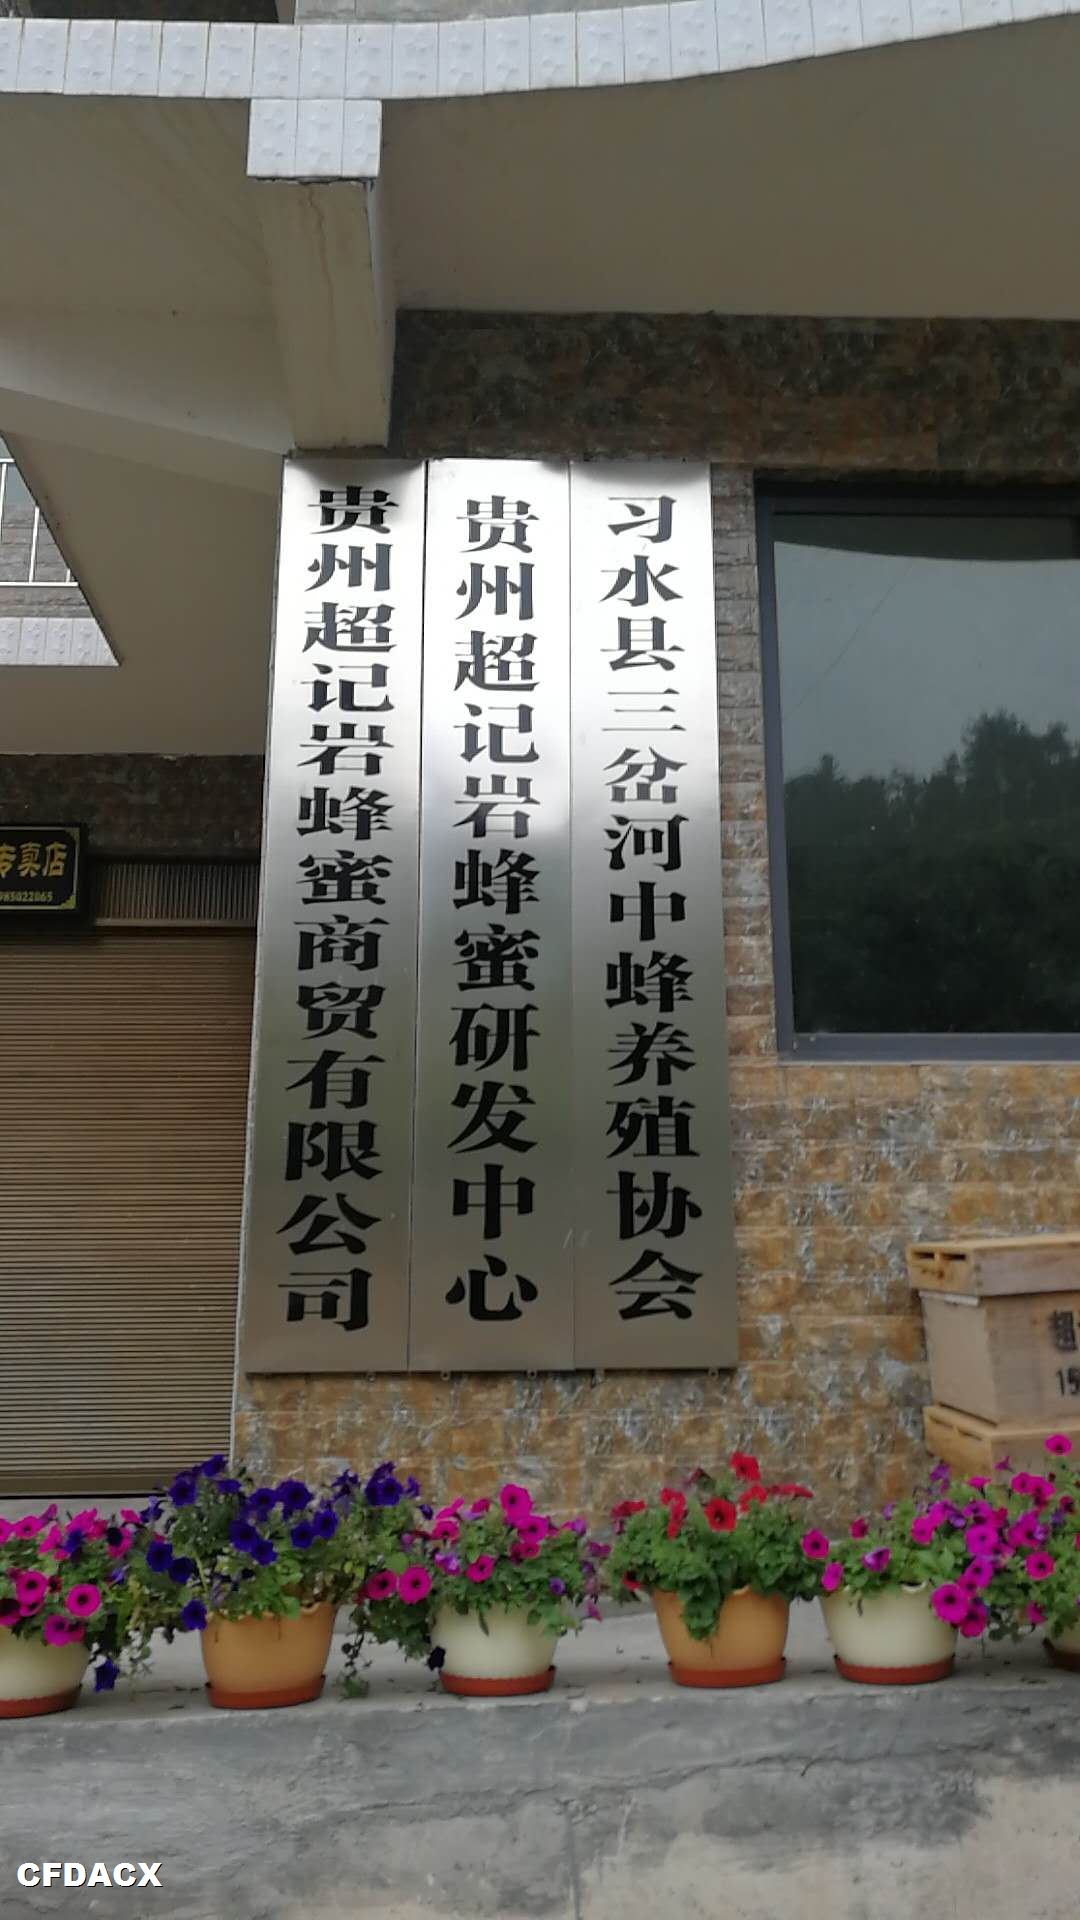 贵州超记岩蜂蜜商贸有限公司
贵州超记岩蜂蜜研发中心
习水县三岔河中蜂养殖协会
专卖店
985022065
超
15
CFDACX